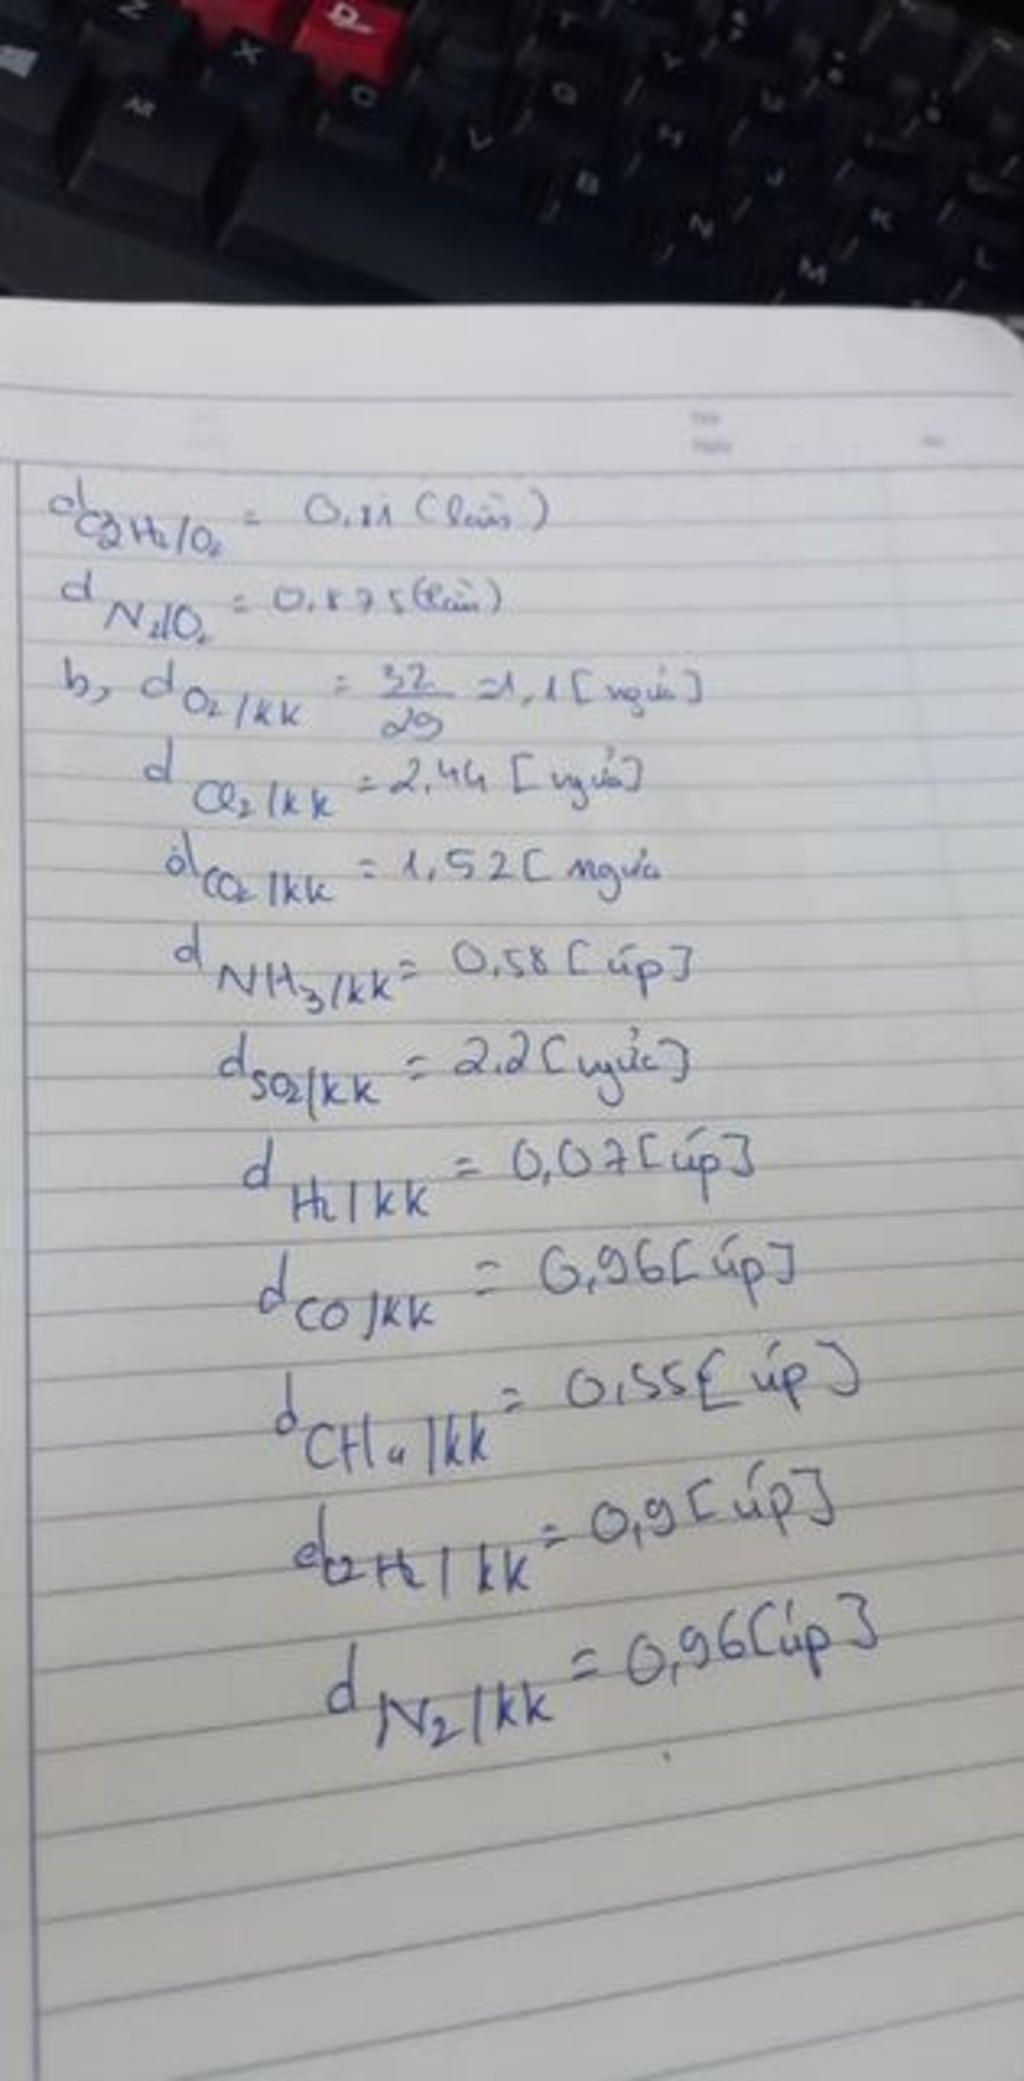 d C2H2/O2 = 0.81 (lần)
d N2/O2 = 0.875 (lần)
b, d O2/kk = 32/29 = 1,1 [ngửa]
d Cl2/kk = 2.44 [ngửa]
d CO2/kk = 1,52 [ngửa
d NH3/kk = 0,58 [úp]
d SO2/kk = 2.2 [ngửa]
d H2/kk = 0,07 [úp]
d CO/kk = 0,96 [úp]
d CH4/kk = 0,55 [úp]
d C2H2/kk = 0,9 [úp]
d N2/kk = 0,96 [úp]